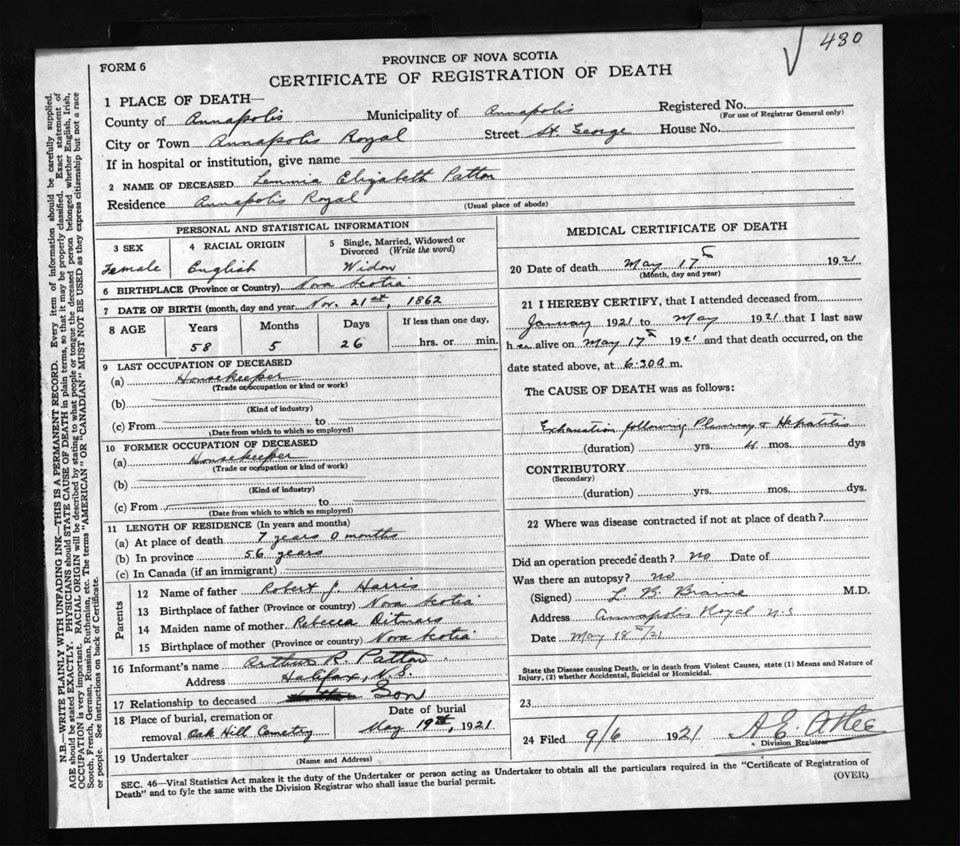 480
FORM 6
PROVINCE OF NOVA SCOTIA
CERTIFICATE OF REGISTRATION OF DEATH
1 PLACE OF DEATH—
County of Annapolis Municipality of Annapolis Registered No.
(For use of Registrar General only)
City or Town Annapolis Royal Street St. George House No.
If in hospital or institution, give name
2 NAME OF DECEASED Lemmia Elizabeth Patton
Residence Annapolis Royal
(Usual place of abode)
PERSONAL AND STATISTICAL INFORMATION
3 SEX 4 RACIAL ORIGIN 5 Single, Married, Widowed or Divorced (Write the word)
Female English Widow
6 BIRTHPLACE (Province or Country) Nova Scotia
7 DATE OF BIRTH (month, day and year Nov. 21st, 1862
8 AGE Years Months Days If less than one day,
58 5 26 hrs. or min.
9 LAST OCCUPATION OF DECEASED
(a) Housekeeper
(Trade or occupation or kind or work)
(b)
(Kind of industry)
(c) From to
(Date from which to which so employed)
10 FORMER OCCUPATION OF DECEASED
(a) Housekeeper
(Trade or occupation or kind of work)
(b)
(Kind of industry)
(c) From to
(Date from which to which so employed)
11 LENGTH OF RESIDENCE (In years and months)
(a) At place of death 7 years 0 months
(b) In province 56 years
(c) In Canada (if an immigrant)
Parents
12 Name of father Robert J. Harris
13 Birthplace of father (Province or country) Nova Scotia
14 Maiden name of mother Rebecca Ditmars
15 Birthplace of mother (Province or country) Nova Scotia
16 Informant's name Arthur R. Patton
Address Halifax, N.S.
17 Relationship to deceased Son
18 Place of burial, cremation or removal Oak Hill Cemetry
Date of burial May 19th, 1921
19 Undertaker
(Name and Address)
MEDICAL CERTIFICATE OF DEATH
20 Date of death May 17th 1921
(Month, day and year)
21 I HEREBY CERTIFY, that I attended deceased from
January 1921 to May 1921 that I last saw
her alive on May 17th 1921 and that death occurred, on the
date stated above, at 6.30 a m.
The CAUSE OF DEATH was as follows:
Exhaustion following Pleurisy & Hepatitis
(duration) yrs. 4 mos. dys
CONTRIBUTORY
(Secondary)
(duration) yrs. mos. dys.
22 Where was disease contracted if not at place of death?
Did an operation precede death? no Date of
Was there an autopsy? no
(Signed) L. B. Braine M.D.
Address Annapolis Royal N.S
Date May 18th/21
State the Disease causing Death, or in death from Violent Causes, state (1) Means and Nature of
Injury, (2) whether Accidental, Suicidal or Homicidal.
23
24 Filed 9/6 1921 A E Atlee
Division Registrar
SEC. 46—Vital Statistics Act makes it the duty of the Undertaker or person acting as Undertaker to obtain all the particulars required in the "Certificate of Registration of
Death" and to fyle the same with the Division Registrar who shall issue the burial permit.
(OVER)
N.B.—WRITE PLAINLY WITH UNFADING INK—THIS IS A PERMANENT RECORD. Every item of information should be carefully supplied.
AGE should be stated EXACTLY. PHYSICIANS should STATE CAUSE OF DEATH in plain terms, so that it may be properly classified. Exact statement of
OCCUPATION is very important. RACIAL ORIGIN will be described by stating to what people or tongue the deceased person belonged whether English, Irish,
Scotch, French, German, Russian, Ruthenian, etc. The terms "AMERICAN" OR "CANADIAN" MUST NOT BE USED as they express citizenship but not a race
or people. See instructions on back of Certificate.